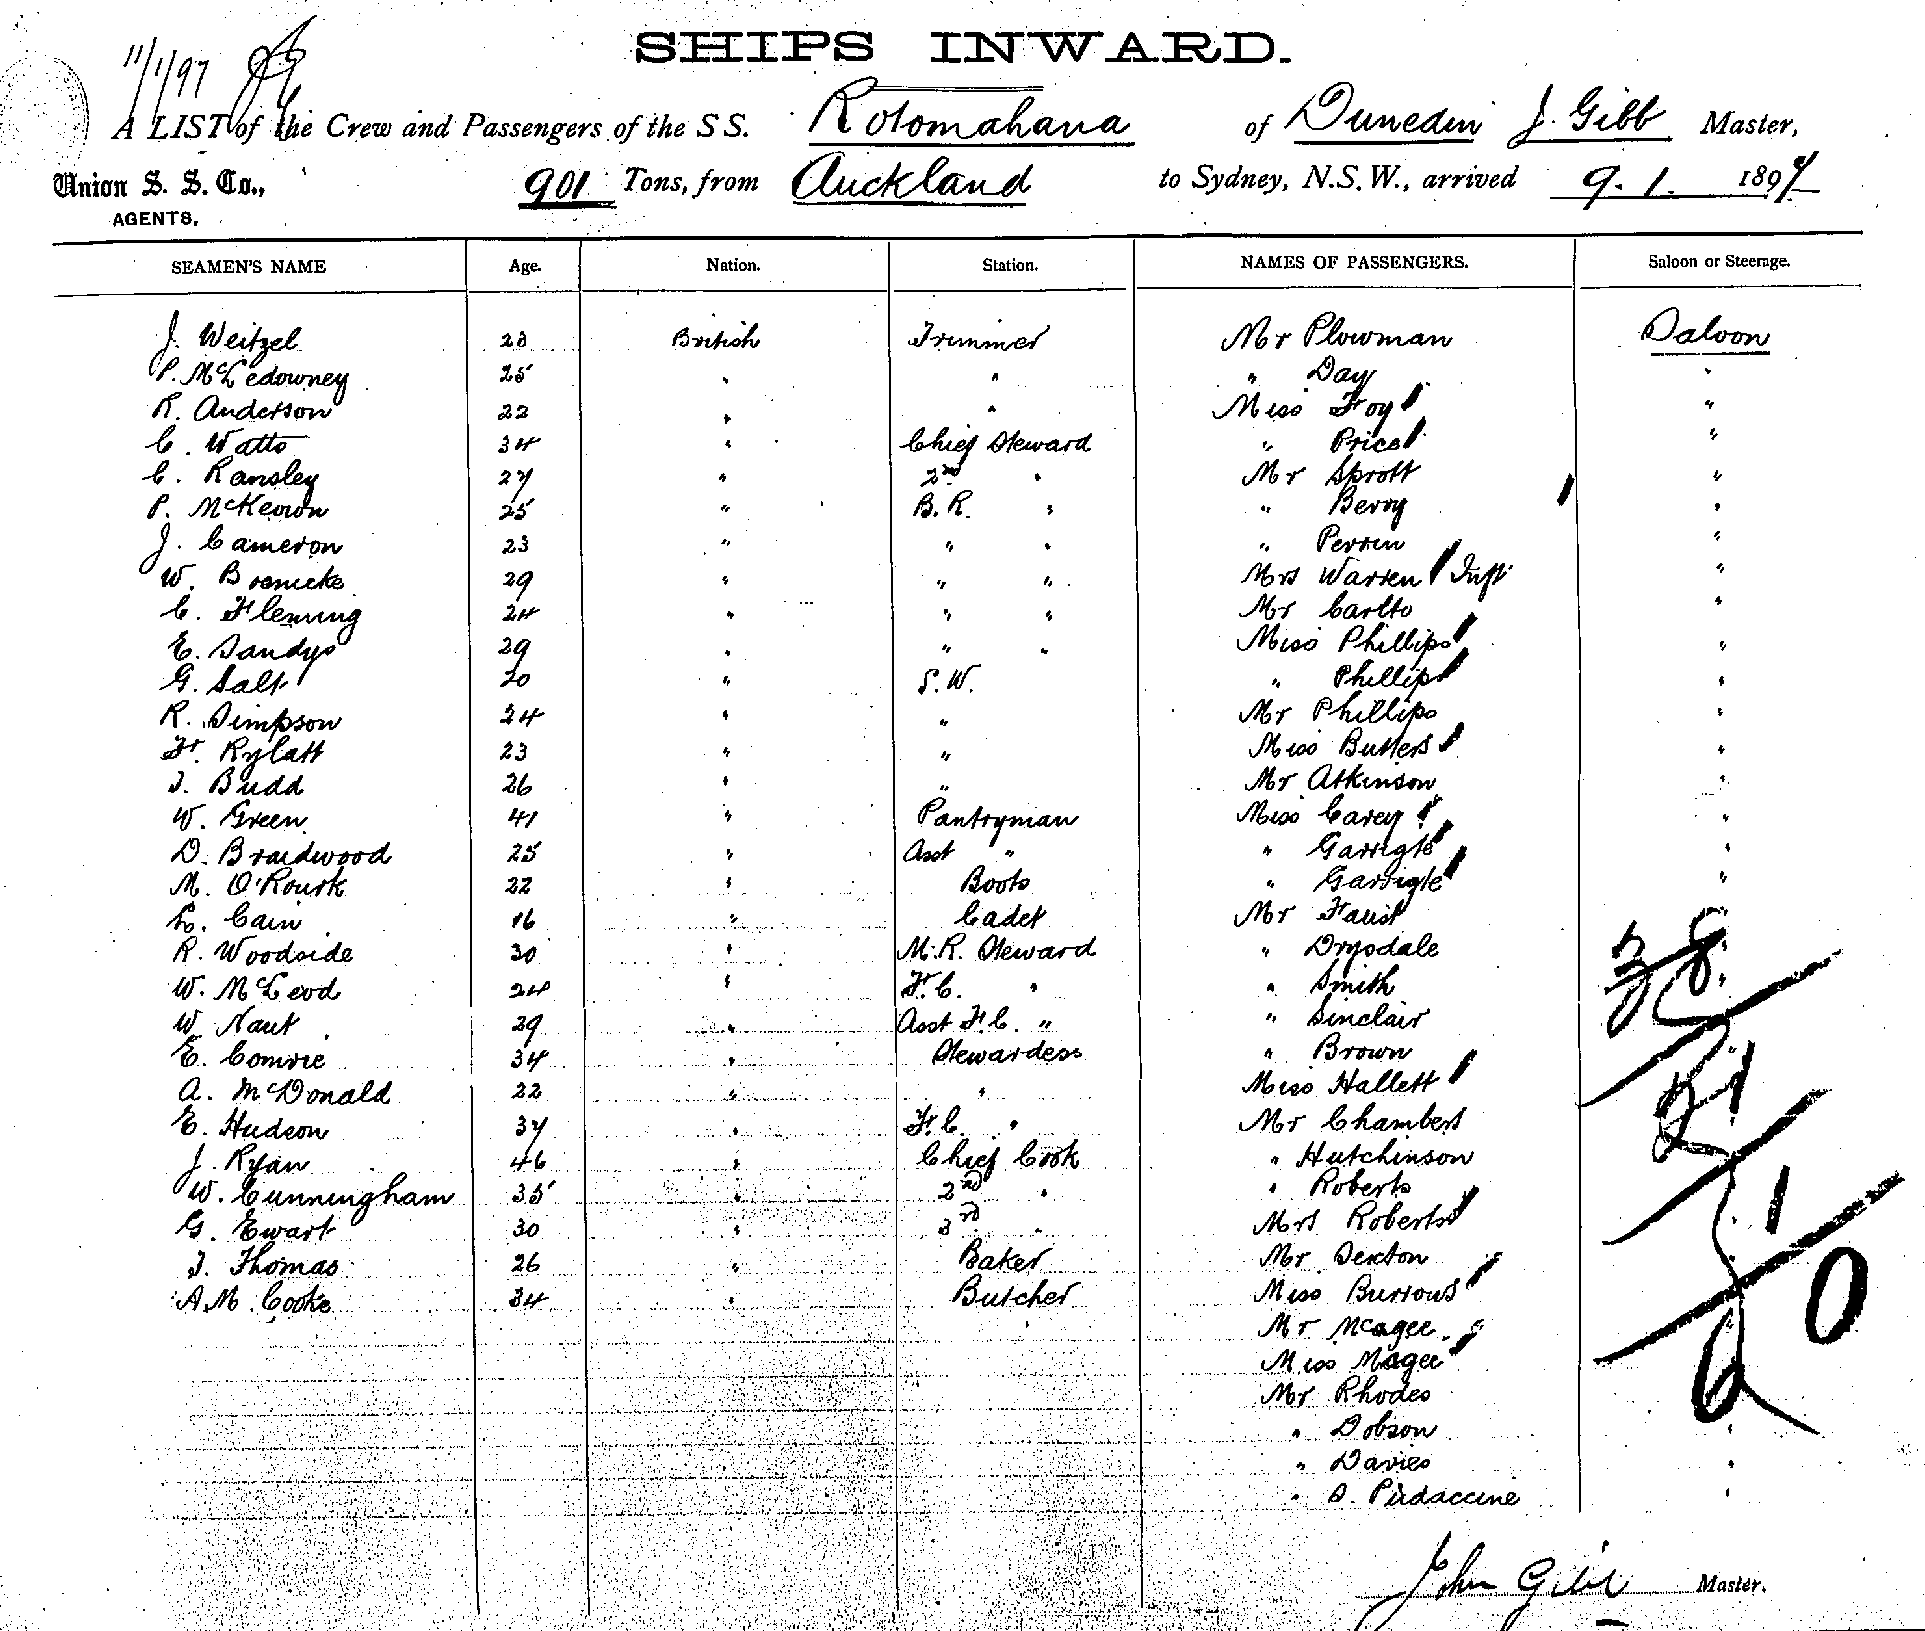 SHIPS INWARD.
11/1/97
A LIST of the Crew and Passengers of the S S. Rotomahana of Dunedin J. Gibb Master,
Union S. S. Co., 901 Tons, from Auckland to Sydney, N.S.W., arrived 9. 1. 1897
AGENTS.
SEAMEN'S NAME Age. Nation. Station. NAMES OF PASSENGERS. Saloon or Steerage.
J. Weitzel 28 British Trimmer Mr Plowman Saloon
P. McLedowney 25 " " " Day "
R. Anderson 22 " " Miss Foy "
C. Watts 34 " Chief Steward " Price "
C. Ransley 27 " 2nd " Mr Sprott "
P. McKeown 25 " B. R. " " Berry "
J. Cameron 23 " " " " Perrin "
W. 29 " " " Mrs Warren Inft "
C. Fleming 24 " " " Mr Carlto "
E. Sandys 29 " " " Miss Phillips "
G. Salt 20 " S. W. " Phillips "
R. Simpson 24 " " Mr Phillips "
F. Rylatt 23 " " Miss Butters "
J. Budd 26 " " Mr Atkinson "
W. Green 41 " Pantryman Miss Carey "
D. Braidwood 25 " Asst " " Garrigle "
M. O'Rourk 22 " Boots " Garrigle "
L. Cain 16 " Cadet Mr Faust
R. Woodside 30 " M. R. Steward " Drysdale
W. McLeod 24 " F. C. " " Smith
W. Naut 29 " Asst F. C. " " Sinclair
E. Comrie 34 " Stewardess " Brown
A. McDonald 22 " " Miss Hallett
E. Hudson 37 " F. C. " Mr Chambers
J. Ryan 46 " Chief Cook " Hutchinson
W. Cunningham 35 " 2nd " " Roberts
G. Ewart 30 " 3rd " Mrs Roberts
J. Thomas 26 " Baker Mr Sexton
A.M. Cooke 34 " Butcher Miss Burrows
Mr McAgee
Miss Magee
Mr Rhodes
" Dobson
" Davies "
" S. Pudaccine "
38
21
1
6 0
John Gibb Master.